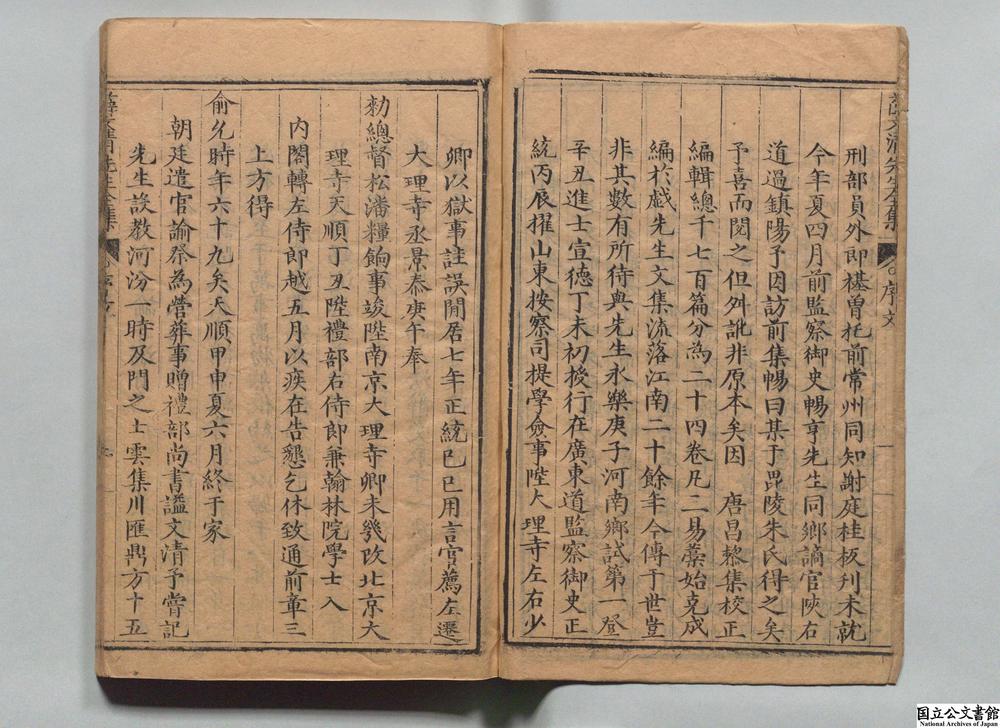 刑部員外郎基曽托前常州同知謝庭桂板刊未就
今年夏四月前監察御史暢亨先生同鄉謫官陝右
道過鎮陽予因訪前集暢曰某于毘陵朱氏得之矣
予喜而閱之但舛訛非原本矣因　唐昌㮚集校正
編輯總千七百篇分為二十四卷凡二易藁始克成
編於戲先生文集流落江南二十餘年今傳于世豈
非其數有所待與先生永樂庚子河南鄉試第一登
辛丑進士宣德丁未初授行在廣東道監察御史正
統丙辰擢山東按察司提學僉事陞大理寺左右少
序文
一
卿以獄事詿誤閒居七年正統已巳用言官薦左遷
大理寺丞景泰庚午奉
勑總督松潘糧餉事竣陞南京大理寺卿未幾改北京大
理寺天順丁丑陞禮部右侍郎兼翰林院學士入
內閣轉左侍郎越五月以疾在告懇乞休致通前章三
上方得
俞允時年六十九矣天順甲申夏六月終于家
朝廷遣官諭祭為營葬事贈禮部尚書謚文清予嘗記
先生設教河汾一時及門之士雲集川匯鼎方十五
国立公文書館
National Archives of Japan